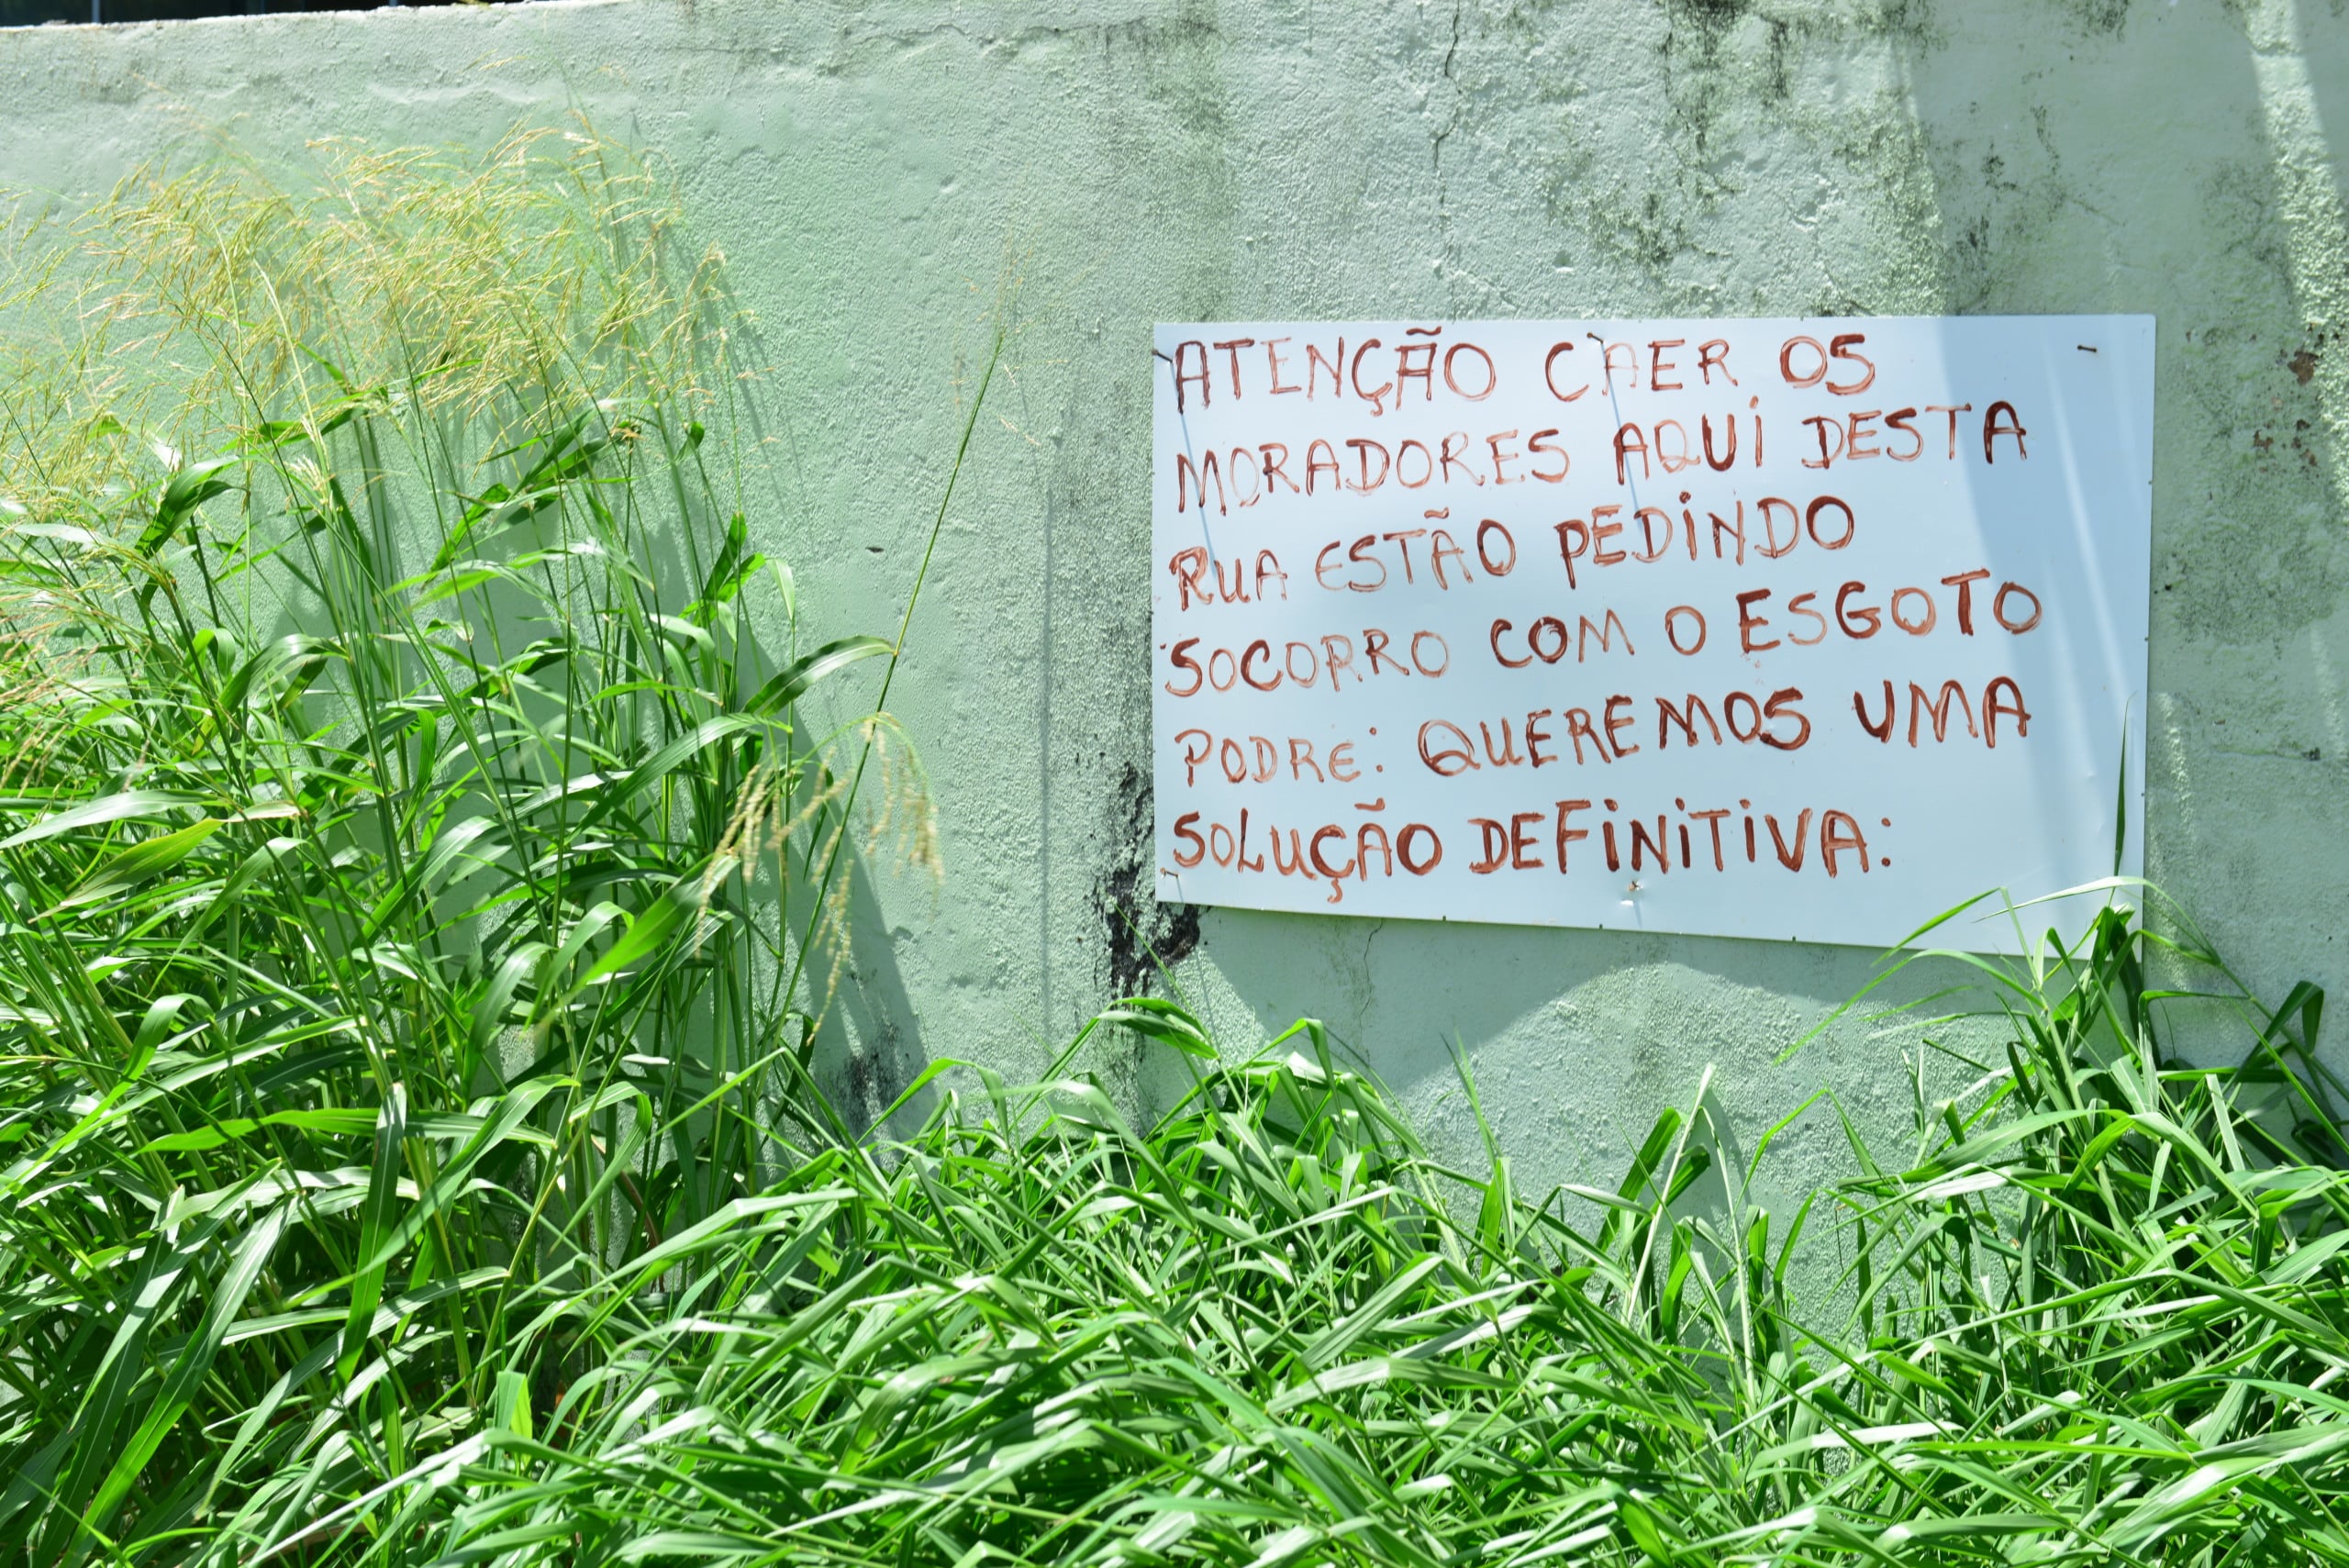 ATENÇÃO CAER OS
MORADORES AQUI DESTA
RUA ESTÃO PEDINDO
SOCORRO COM O ESGOTO
PODRE: QUEREMOS UMA
SOLUÇÃO DEFINITIVA: